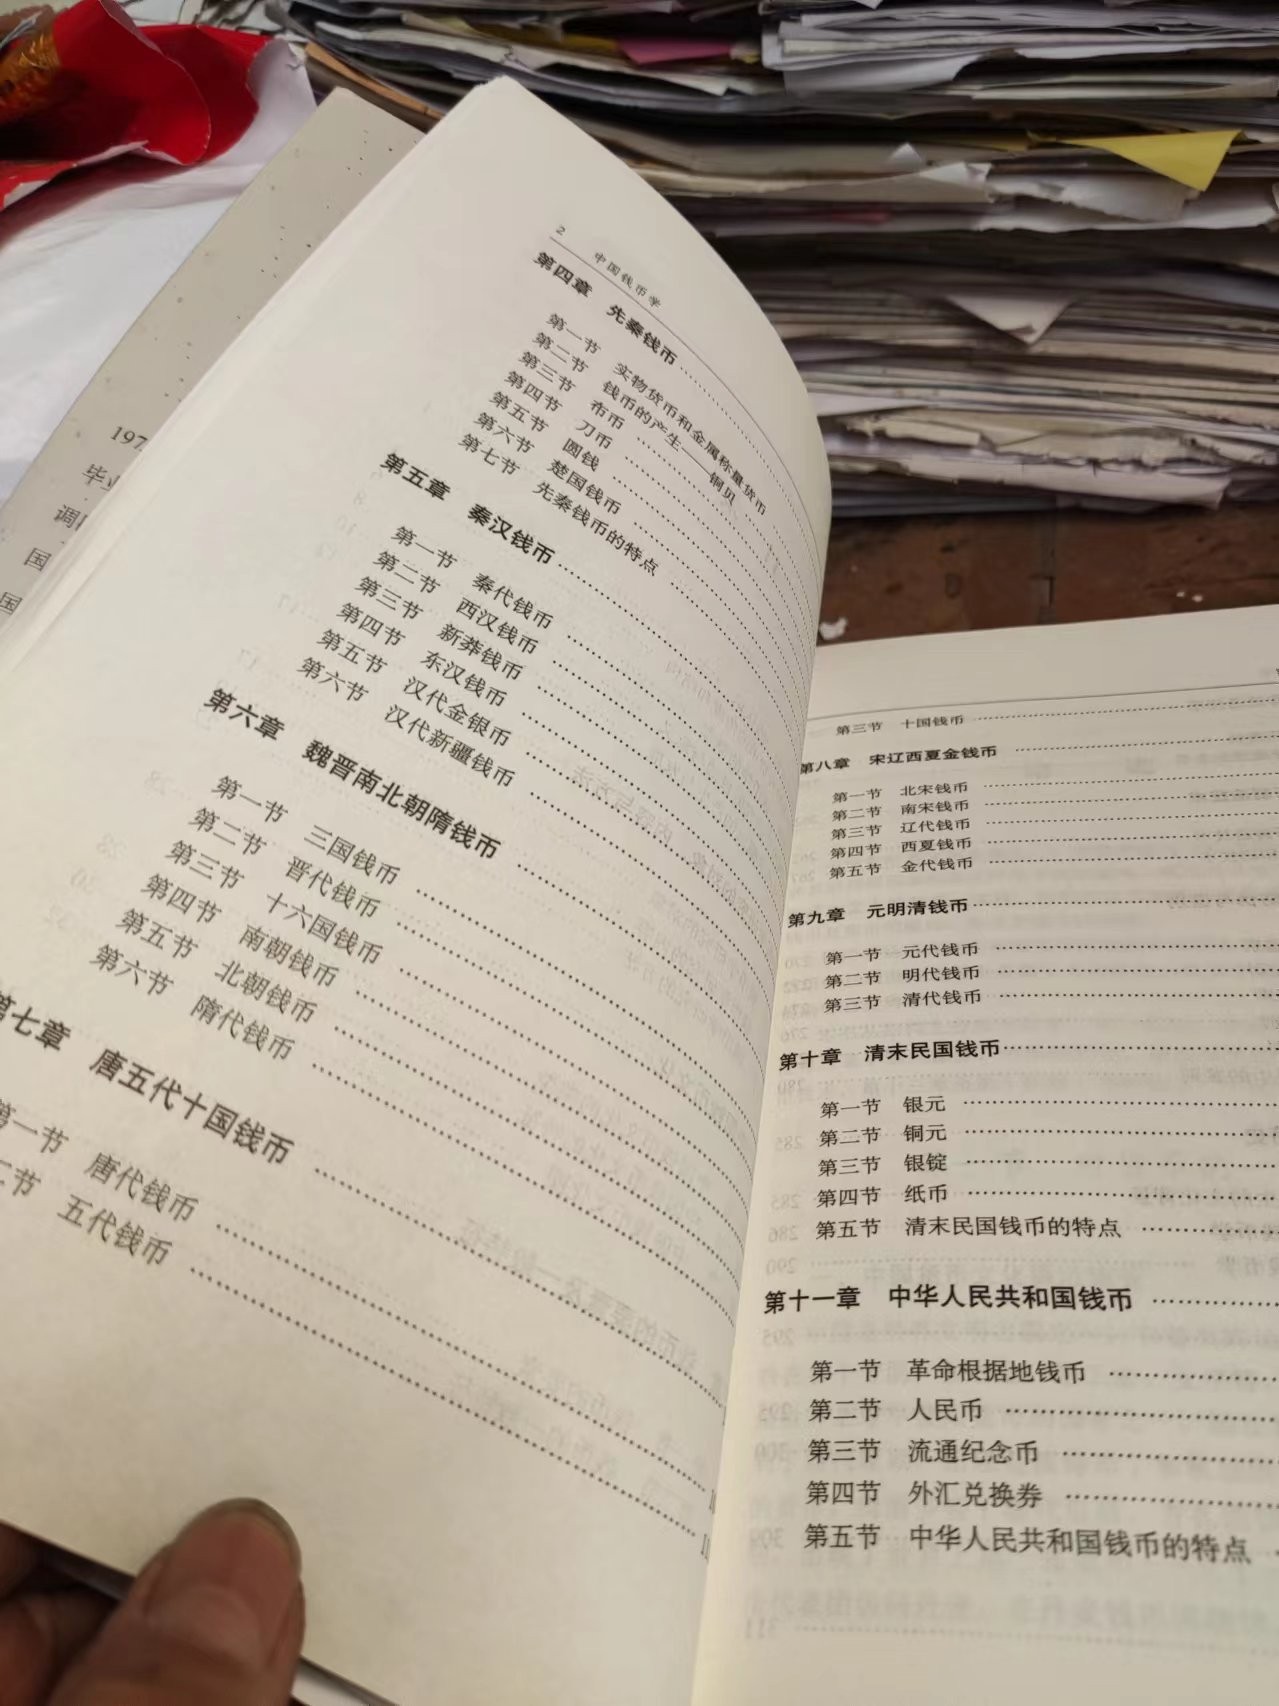 197
毕业
调
国
国
2 中国钱币学
第四章 先秦钱币
第一节 实物货币和金属称量货币
第二节 钱币的产生——铜贝
第三节 布币
第四节 刀币
第五节 圆钱
第六节 楚国钱币
第七节 先秦钱币的特点
第五章 秦汉钱币
第一节 秦代钱币
第二节 西汉钱币
第三节 新莽钱币
第四节 东汉钱币
第五节 汉代金银币
第六节 汉代新疆钱币
第六章 魏晋南北朝隋钱币
第一节 三国钱币
第二节 晋代钱币
第三节 十六国钱币
第四节 南朝钱币
第五节 北朝钱币
第六节 隋代钱币
第七章 唐五代十国钱币
第一节 唐代钱币
二节 五代钱币
第三节 十国钱币
第八章 宋辽西夏金钱币
第一节 北宋钱币
第二节 南宋钱币
第三节 辽代钱币
第四节 西夏钱币
第五节 金代钱币
第九章 元明清钱币
第一节 元代钱币
第二节 明代钱币
第三节 清代钱币
第十章 清末民国钱币
第一节 银元
第二节 铜元
第三节 银锭
第四节 纸币
第五节 清末民国钱币的特点
第十一章 中华人民共和国钱币
第一节 革命根据地钱币
第二节 人民币
第三节 流通纪念币
第四节 外汇兑换券
第五节 中华人民共和国钱币的特点